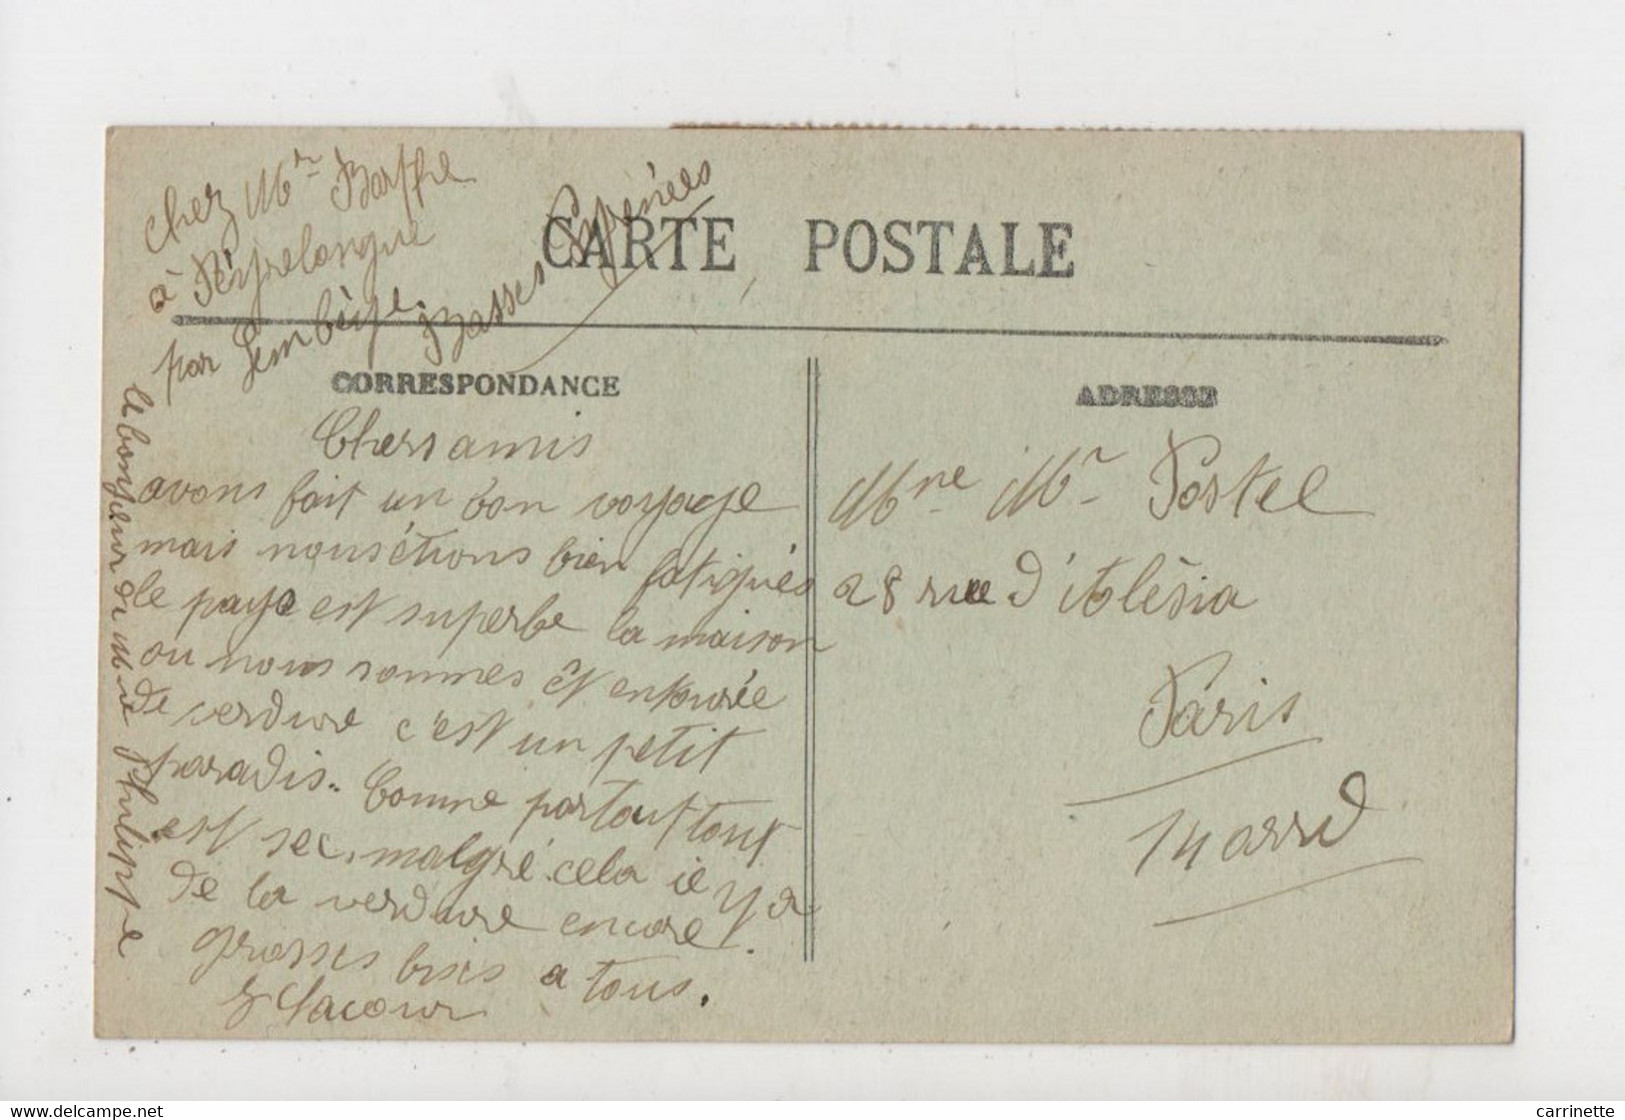 chez Mr Barthe
à Peyrelongue
par Lembèye.
Basses Pyrénées
CARTE POSTALE
CORRESPONDANCE
Chers amis
avons fait un bon voyage
mais nous étions bien fatigués
le pays est superbe la maison
ou nous sommes ét entourée
de verdure c'est un petit
paradis.. Comme partout tout
est sec. malgré cela il y a
de la verdure encore.
grosses bises a tous.
Lacour
le bonjour du Mr Philippe
ADRESSE
Mme Mr Postel
28 rue d'Alésia
Paris
14 arrd
delcampe.net
carrinette